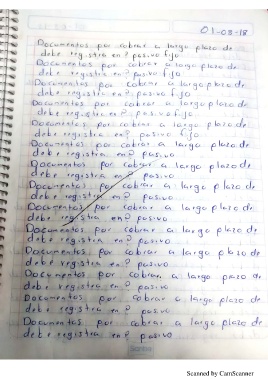 01-08-18
Documentos por cobrar a largo plazo de
debe registra en? pasivo fijo
Documentos por cobrar a largo plazo de
debe registra en? pasivo fijo
Documentos por cobrar a largo plazo de
debe registra en? pasivo fijo
Documentos por cobrar a largo plazo de
debe registra en? pasivo fijo
Documentos por cobrar a largo plazo de
debe registra en? pasivo fijo
Documentos por cobrar a largo plazo de
debe registra en? pasivo
Documentos por cobrar a largo plazo de
debe registra en? pasivo
Documentos por cobrar a largo plazo de
debe registra en? pasivo
Documentos por cobrar a largo plazo de
debe registra en? pasivo
Documentos por cobrar a largo plazo de
debe registra en? pasivo
Documentos por cobrar a largo plazo de
debe registra en? pasivo
Documentos por cobrar a largo plazo de
debe registra en? pasivo
Documentos por cobrar a largo plazo de
debe registra en? pasivo
Scanned by CamScanner